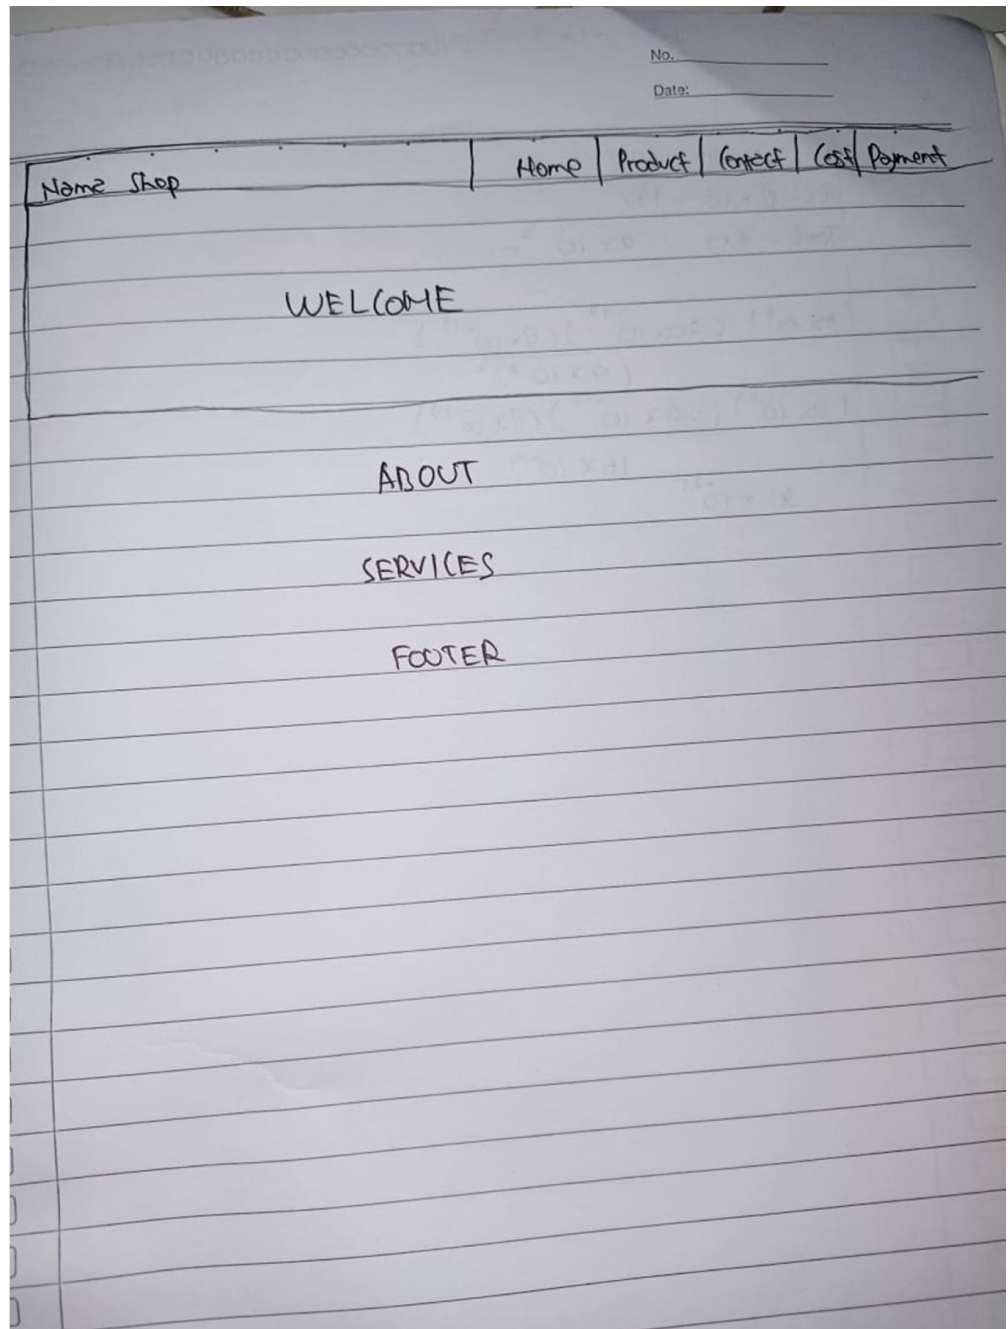 No.
Date:
Name Shop Home Product Contact Cost Payment
WELCOME
ABOUT
SERVICES
FOOTER